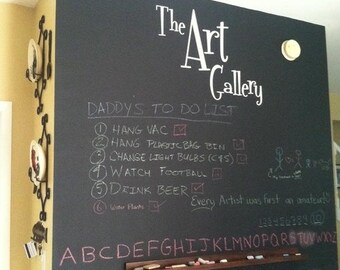 The
Art
Gallery
DADDYS TO DO LIST
① HANG VAC
② HANG PLASTIC BAG BIN
③ CHANGE LIGHT BULBS
④ WATCH FOOTBALL
⑤ DRINK BEER
⑥ Water Plants
Every Artist was first an amateur
ABCDEFGHIJKLMNOPQRSTUVWXYZ